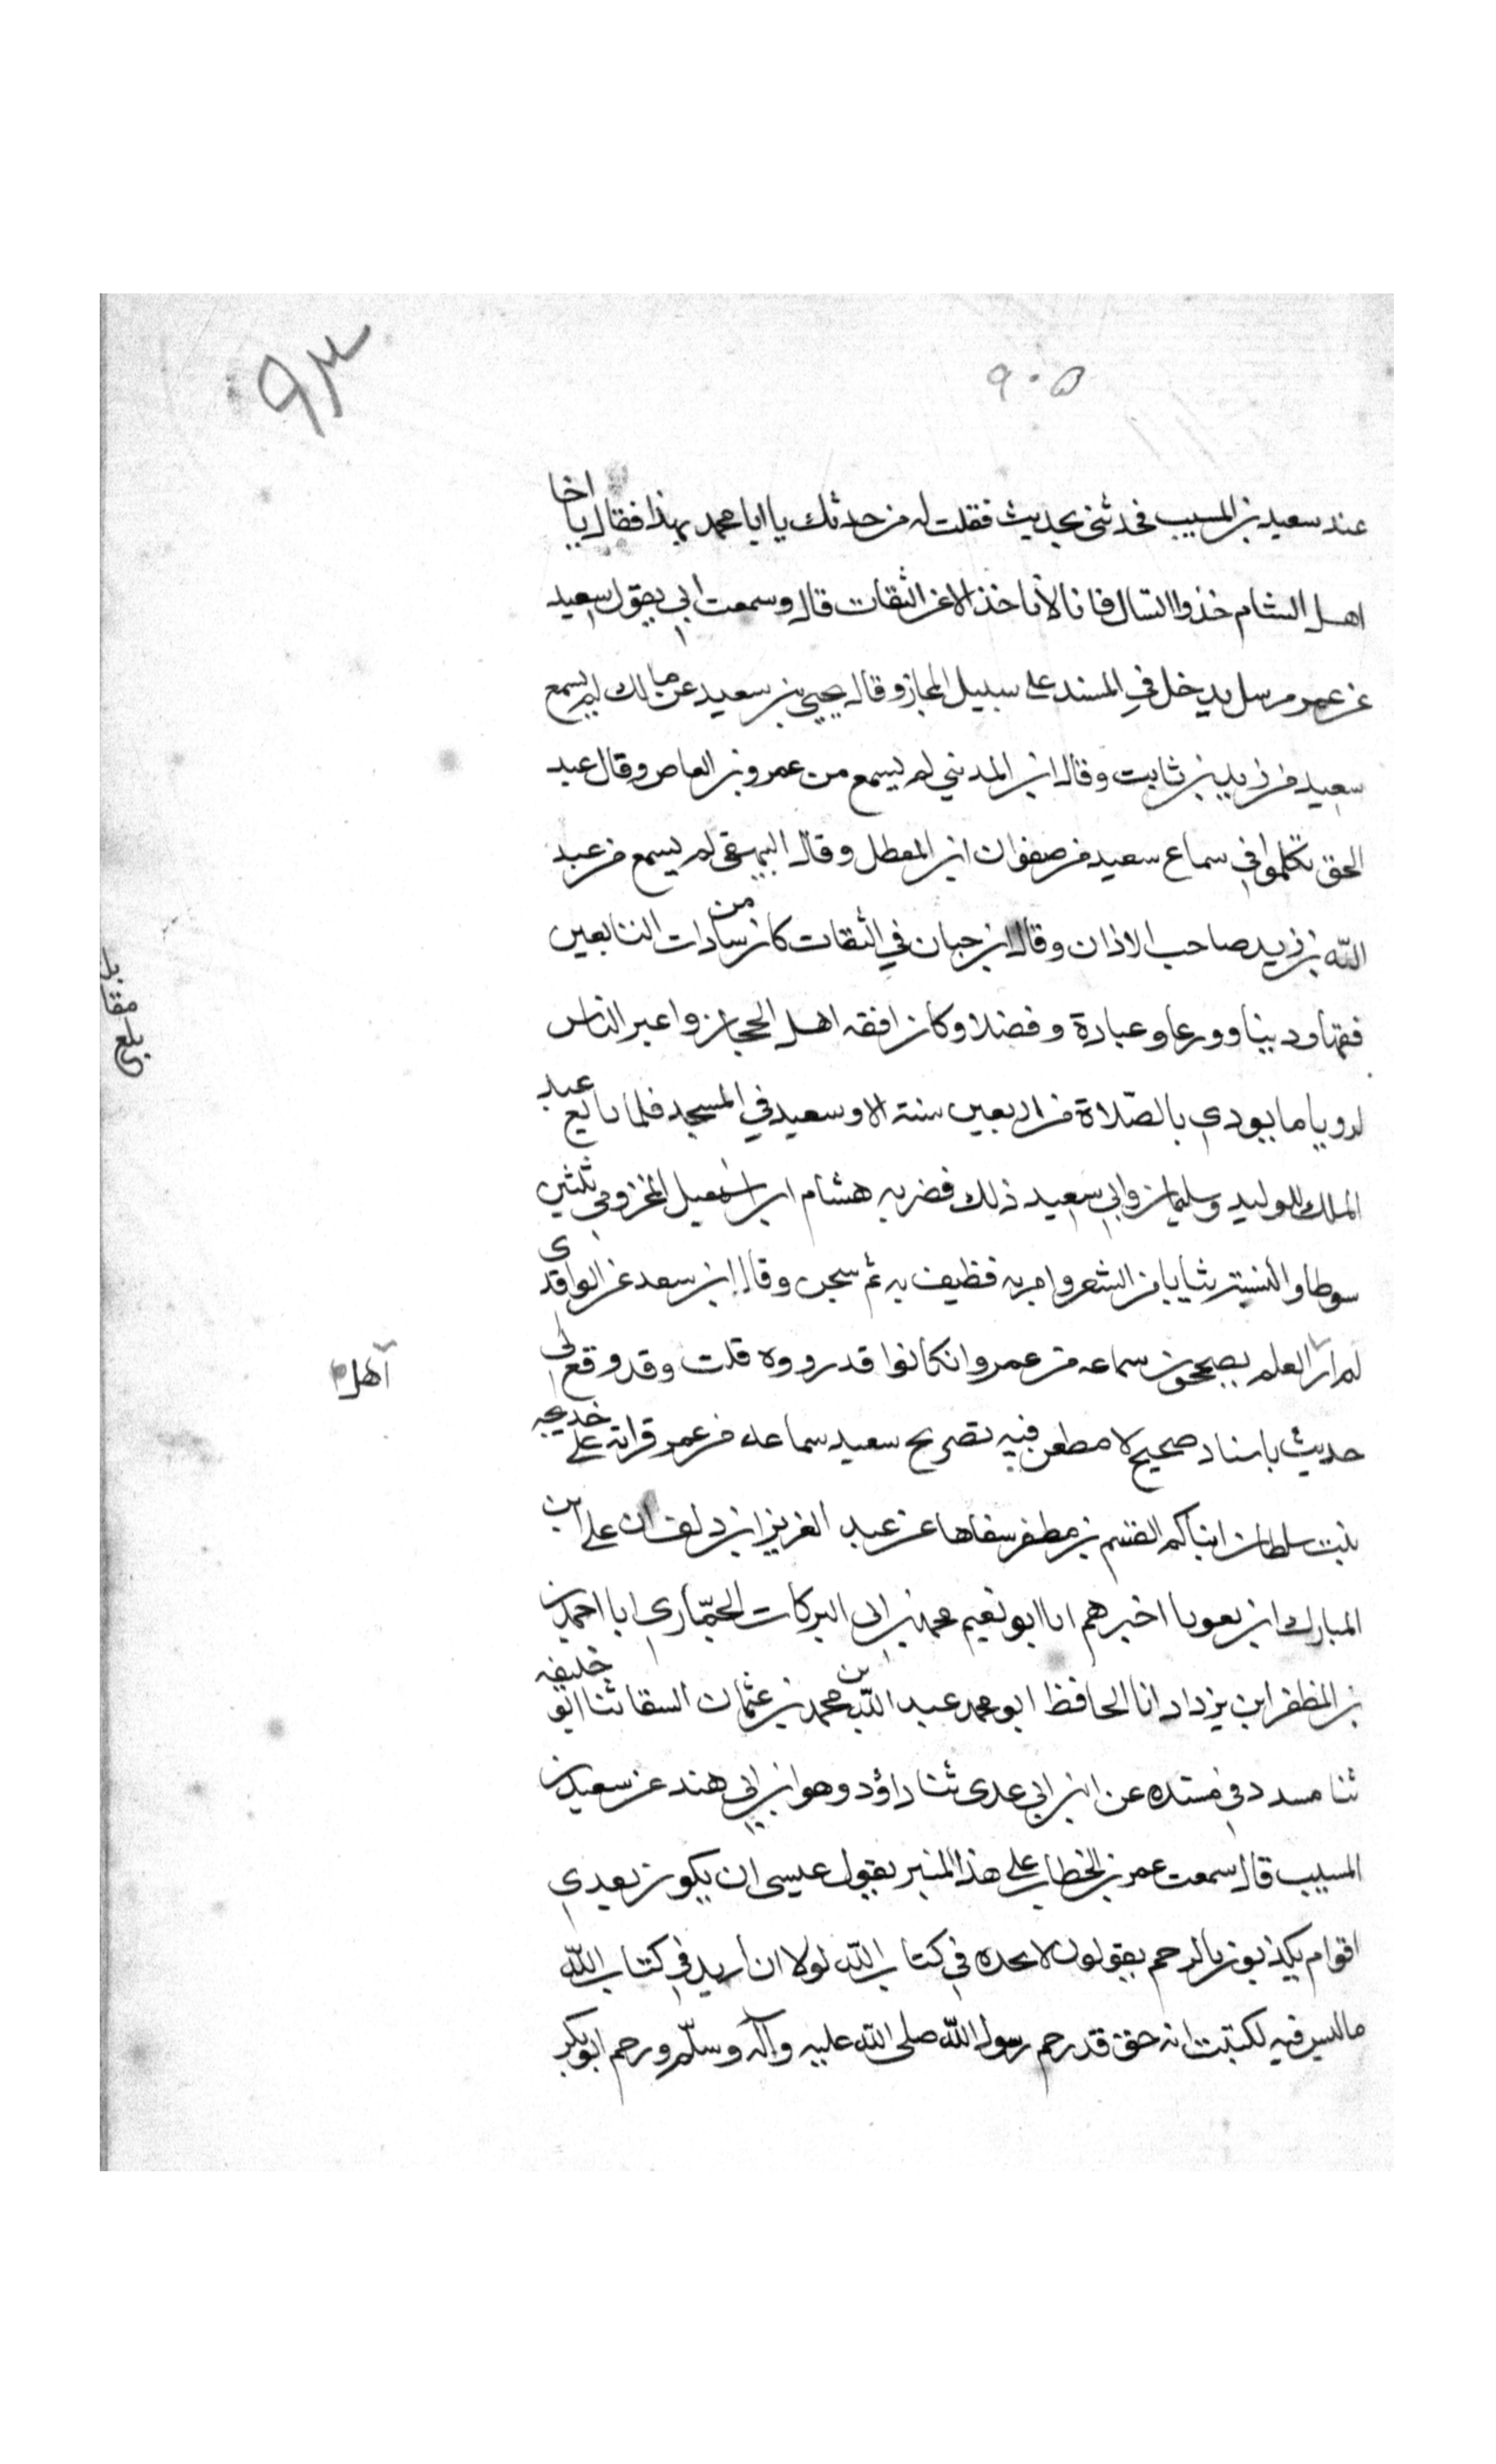 ٩٣
٩٠٥
عند سعيد بن المسيب فحدثني بحديث فقلت له من حدثك يا ابا محمد بهذا فقال يا اخا
اهل الشام خذ ولا تسال فانا لا ناخذ الا عن الثقات قال وسمعت ابي يقول سعيد
عن عمر مرسل يدخل في المسند على سبيل المجاز وقال يحيى بن سعيد عن مالك لم يسمع
سعيد من زيد بن ثابت وقال ابن المديني لم يسمع من عمرو بن العاص وقال عبد
الحق تكلموا في سماع سعيد من صفوان ابن المعطل وقال البيهقي لم يسمع من عبد
الله بن زيد صاحب الاذان وقال ابن حبان في الثقات كان من سادات التابعين
فقها ودينا وورعا وعبادة وفضلا وكان افقه اهل الحجاز واعبر الناس
لرويا ما يودي بالصّلاة من اربعين سنة الا وسعيد في المسجد فلما بايع عبد
الملك للوليد وسليمان وابي سعيد ذلك فضربه هشام ابن اسمعيل المخزومي ثلثين
سوطا والبسه ثيابا من الشعر وامر به فطيف به ثم سجن وقال ابن سعد عن الواقدي
لم ار العلم يصححون سماعه من عمر وان كانوا قد رووه قلت وقد وقع لي
اهل
حديث باسناد صحيح لا مطعن فيه تصريح سعيد سماعه من عمر قراته على خديجه
بنت سلطان انباكم القسم بن مظفر شفاها عن عبد العزيز ابن دلف ان علي بن
المبارك ابن اخبرهم انا ابو نعيم محمد بن ابي البركات الجمّاري انا احمد بن
بن المظفر ابن يزداد انا الحافظ ابو محمد عبد الله بن محمد بن عثمان السقا ثنا ابو خليفه
ثنا مسدد في مسنده عن ابن ابي عدي ثنا داؤد وهو ابن ابي هند عن سعيد بن
المسيب قال سمعت عمر بن الخطاب على هذا المنبر يقول عسى ان يكون بعدي
اقوام يكذبون بالرحم يقولون لا نجده في كتاب الله لولا ان ازيد في كتاب الله
ما ليس فيه لكتبت انه حق قد رجم رسول الله صلى الله عليه وآله وسلّم ورجم ابو بكر
بلغ مقابله